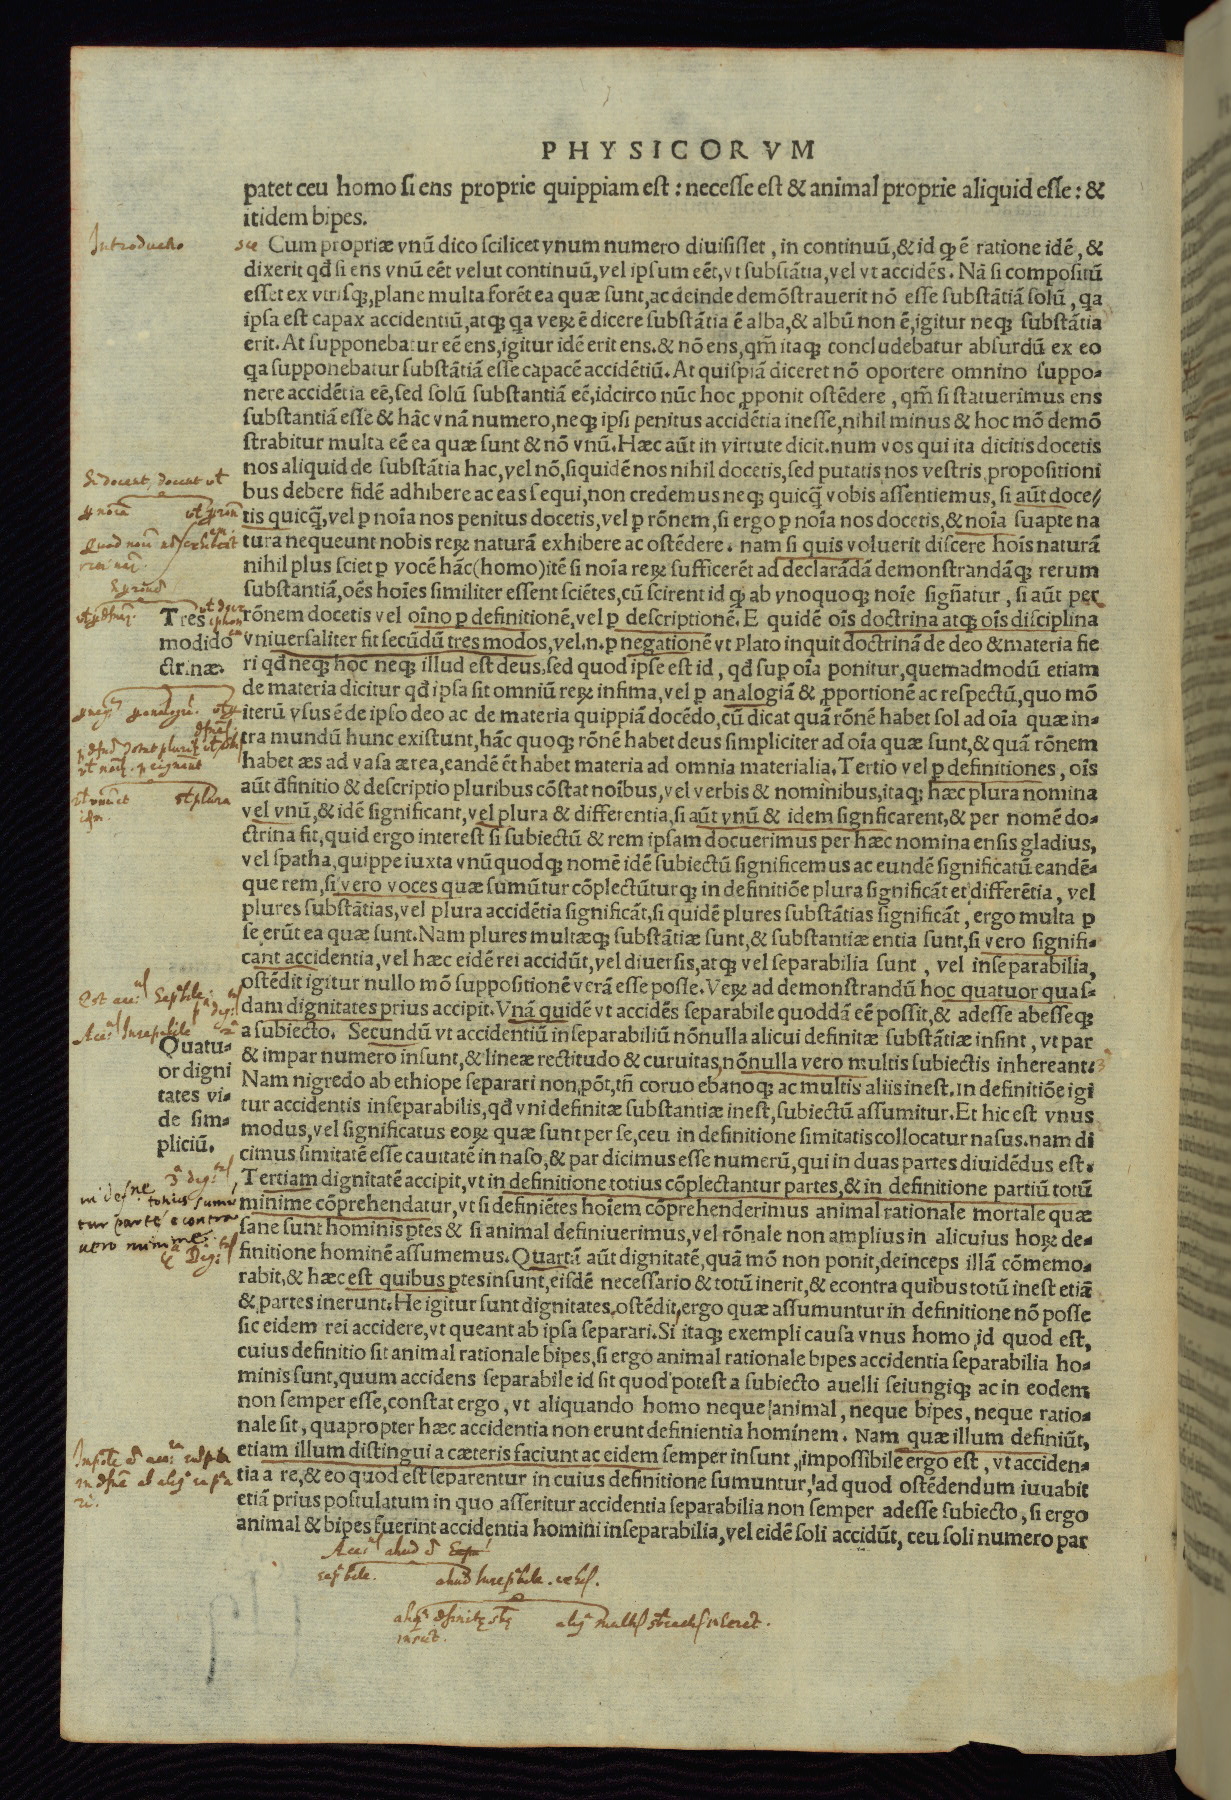 PHYSICORVM
patet ceu homo si ens proprie quippiam est : necesse est & animal proprie aliquid esse : &
itidem bipes.
Introductio
Cum propriæ vnū dico scilicet vnum numero diuisisset, in continuū, & id qꝫ ē ratione idē, &
dixerit qđ si ens vnū eēt velut continuū, vel ipsum eēt, vt substātia, vel vt accidēs. Nā si compositū
esset ex vtrisqꝫ, plane multa forēt ea quæ sunt, ac deinde demōstrauerit nō esse substātiā solū, qa
ipsa est capax accidentiū, atqꝫ qa veꝝ ē dicere substātia ē alba, & albū non ē, igitur neqꝫ substātia
erit. At supponebatur eē ens, igitur idē erit ens. & nō ens, qm̄ itaqꝫ concludebatur absurdū ex eo
qa supponebatur substātiā esse capacē accidētiū. At quispiā diceret nō oportere omnino suppo-
nere accidētia eē, sed solū substantiā eē, idcirco nūc hoc ꝓponit ostēdere, qm̄ si statuerimus ens
substantiā esse & hāc vnā numero, neqꝫ ipsi penitus accidētia inesse, nihil minus & hoc mō demō
strabitur multa eē ea quæ sunt & nō vnū. Hæc aūt in virtute dicit. num vos qui ita dicitis docetis
nos aliquid de substātia hac, vel nō, siquidē nos nihil docetis, sed putatis nos vestris, propositioni
bus debere fidē adhibere ac eas sequi, non credemus neqꝫ quicq̄ vobis assentiemus, si aūt doce/
tis quicq̄, vel ꝑ noīa nos penitus docetis, vel ꝑ rōnem, si ergo ꝑ noīa nos docetis, & noīa suapte na
tura nequeunt nobis reꝝ naturā exhibere ac ostēdere. nam si quis voluerit discere hoīs naturā
nihil plus sciet ꝑ vocē hāc (homo) itē si noīa reꝝ sufficerēt ad declarādā demonstrandāqꝫ rerum
substantiā, oēs hoīes similiter essent sciētes, cū scirent id qꝫ ab vnoquoqꝫ noīe sign̄atur, si aūt per
Tres
modi do
ctrinæ.
rōnem docetis vel oīno ꝑ definitionē, vel ꝑ descriptionē. E quidē oīs doctrina atqꝫ oīs disciplina
vniuersaliter fit secūdū tres modos, vel. n. ꝑ negationē vt Plato inquit doctrinā de deo & materia fie
ri qđ neqꝫ hoc neqꝫ illud est deus, sed quod ipse est id, qđ suꝑ oīa ponitur, quemadmodū etiam
de materia dicitur qđ ipsa sit omniū reꝝ infima, vel ꝑ analogiā & ꝓportionē ac respectū, quo mō
iterū vsus ē de ipso deo ac de materia quippiā docēdo, cū dicat quā rōnē habet sol ad oīa quæ in-
tra mundū hunc existunt, hāc quoqꝫ rōnē habet deus simpliciter ad oīa quæ sunt, & quā rōnem
habet æs ad vasa ærea, eandē ēt habet materia ad omnia materialia. Tertio vel ꝑ definitiones, oīs
aūt đfinitio & descriptio pluribus cōstat noībus, vel verbis & nominibus, itaqꝫ hæc plura nomina
vel vnū, & idē significant, vel plura & differentia, si aūt vnū & idem signficarent, & per nomē do-
ctrina fit, quid ergo interest si subiectū & rem ipsam docuerimus per hæc nomina ensis gladius,
vel spatha, quippe iuxta vnū quodqꝫ nomē idē subiectū significemus ac eundē significatū eandē-
que rem, si vero voces quæ sumūtur cōplectūturqꝫ in definitiōe plura significāt et differētia, vel
plures substātias, vel plura accidētia significāt, si quidē plures substātias significāt, ergo multa ꝑ
se erūt ea quæ sunt. Nam plures multæqꝫ substātiæ sunt, & substantiæ entia sunt, si vero signifi-
cant accidentia, vel hæc eidē rei accidūt, vel diuersis, atqꝫ vel separabilia sunt, vel inseparabilia,
ostēdit igitur nullo mō suppositionē verā esse posse. Veꝝ ad demonstrandū hoc quatuor quas-
dam dignitates prius accipit. Vnā quidē vt accidēs separabile quoddā eē possit, & adesse abesseqꝫ
Quatu-
or digni
tates vi-
de sim-
pliciū.
a subiecto. Secundū vt accidentiū inseparabiliū nōnulla alicui definitæ substātiæ insint, vt par
& impar numero insunt, & lineæ rectitudo & curuitas, nōnulla vero multis subiectis inhereant.
Nam nigredo ab ethiope separari non pōt, tn̄ coruo ebanoqꝫ ac multis aliis inest. In definitiōe igi
tur accidentis inseparabilis, qđ vni definitæ substantiæ inest, subiectū assumitur. Et hic est vnus
modus, vel significatus eoꝝ quæ sunt per se, ceu in definitione simitatis collocatur nasus. nam di
cimus simitatē esse cauitatē in naso, & par dicimus esse numerū, qui in duas partes diuidēdus est.
Tertiam dignitatē accipit, vt in definitione totius cōplectantur partes, & in definitione partiū totū
minime cōprehendatur, vt si definiētes hoīem cōprehenderimus animal rationale mortale quæ
sane sunt hominis ꝑtes & si animal definiuerimus, vel rōnale non amplius in alicuius hoꝝ de-
finitione hominē assumemus. Quartā aūt dignitatē, quā mō non ponit, deinceps illā cōmemo-
rabit, & hæc est quibus ꝑtes insunt, eisdē necessario & totū inerit, & econtra quibus totū inest etiā
& partes inerunt. He igitur sunt dignitates. ostēdit, ergo quæ assumuntur in definitione nō posse
sic eidem rei accidere, vt queant ab ipsa separari. Si itaqꝫ exempli causa vnus homo id quod est,
cuius definitio sit animal rationale bipes, si ergo animal rationale bipes accidentia separabilia ho-
minis sunt, quum accidens separabile id sit quod potest a subiecto auelli seiungiqꝫ ac in eodem
non semper esse, constat ergo, vt aliquando homo neque animal, neque bipes, neque ratio-
nale sit, quapropter hæc accidentia non erunt definientia hominem. Nam quæ illum definiūt,
etiam illum distingui a cæteris faciunt ac eidem semper insunt, impossibile ergo est, vt acciden-
tia a re, & eo quod est separentur in cuius definitione sumuntur, ad quod ostēdendum iuuabit
etiā prius postulatum in quo asseritur accidentia separabilia non semper adesse subiecto, si ergo
animal & bipes fuerint accidentia homini inseparabilia, vel eidē soli accidūt, ceu soli numero par